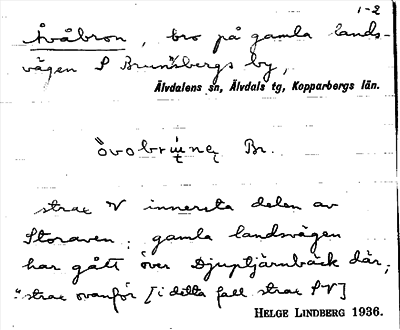 1-2
Åvåbron, bro på gamla lands-
vägen S Brunnsbergs by,
Älvdalens sn, Älvdals tg, Kopparbergs län.
Br.
strax V innersta delen av
Storaven; gamla landsvägen
har gått över Djuptjärnbäck där;
"strax ovanför [i detta fall strax SV]
HELGE LINDBERG 1936.